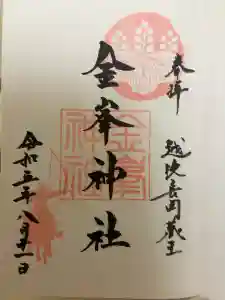 奉拝
越後長岡蔵王
金峯神社
令和五年八月十一日
金峯
神社